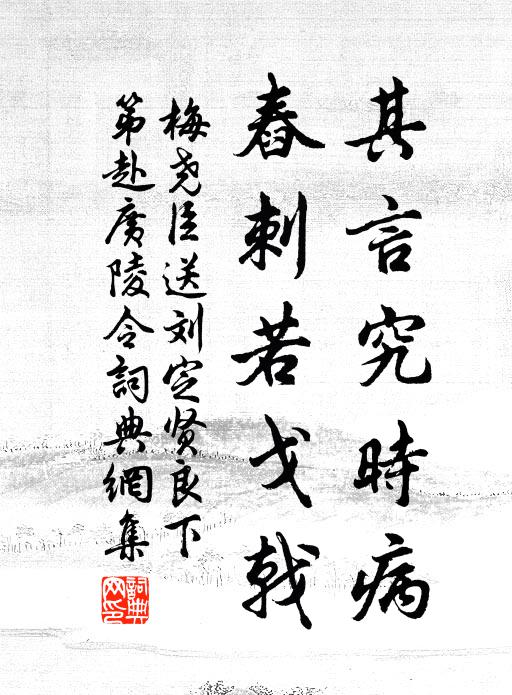 其言究時病
舂刺若戈戟
梅尧臣送刘定贤良下
第赴廣陵令詞典網集
詞典
网印